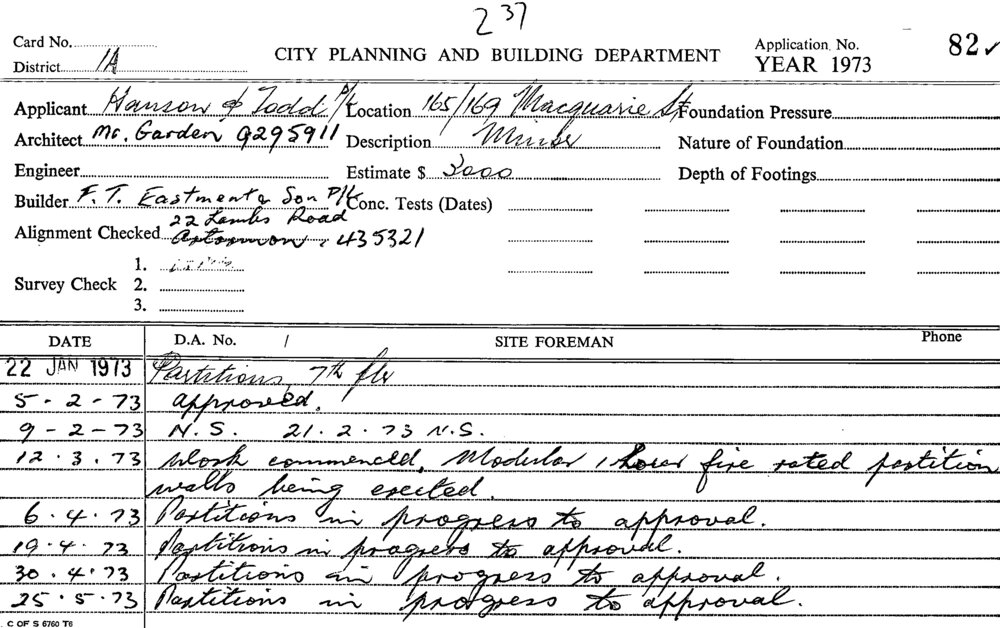 237
Card No.
District 1A
CITY PLANNING AND BUILDING DEPARTMENT
Application No. 82 ✓
YEAR 1973
Applicant Hanson & Todd P/L Location 165/169 Macquarie St Foundation Pressure
Architect Mr. Garden 9295911 Description Minor Nature of Foundation
Engineer Estimate $ 3000 Depth of Footings
Builder F. T. Eastment & Son P/L Conc. Tests (Dates)
22 Lambs Road
Alignment Checked Artarmon. 435321
Survey Check
1.
2.
3.
DATE D.A. No. / SITE FOREMAN Phone
22 JAN 1973 Partitions, 7th flr
5-2-73 approved.
9-2-73 N.S. 21.2.73 N.S.
12.3.73 Work commenced, Modular, 1 hour fire rated partition
walls being erected.
6.4.73 Partitions in progress to approval.
19.4.73 Partitions in progress to approval.
30.4.73 Partitions in progress to approval.
25.5.73 Partitions in progress to approval.
C OF S 6760 T6